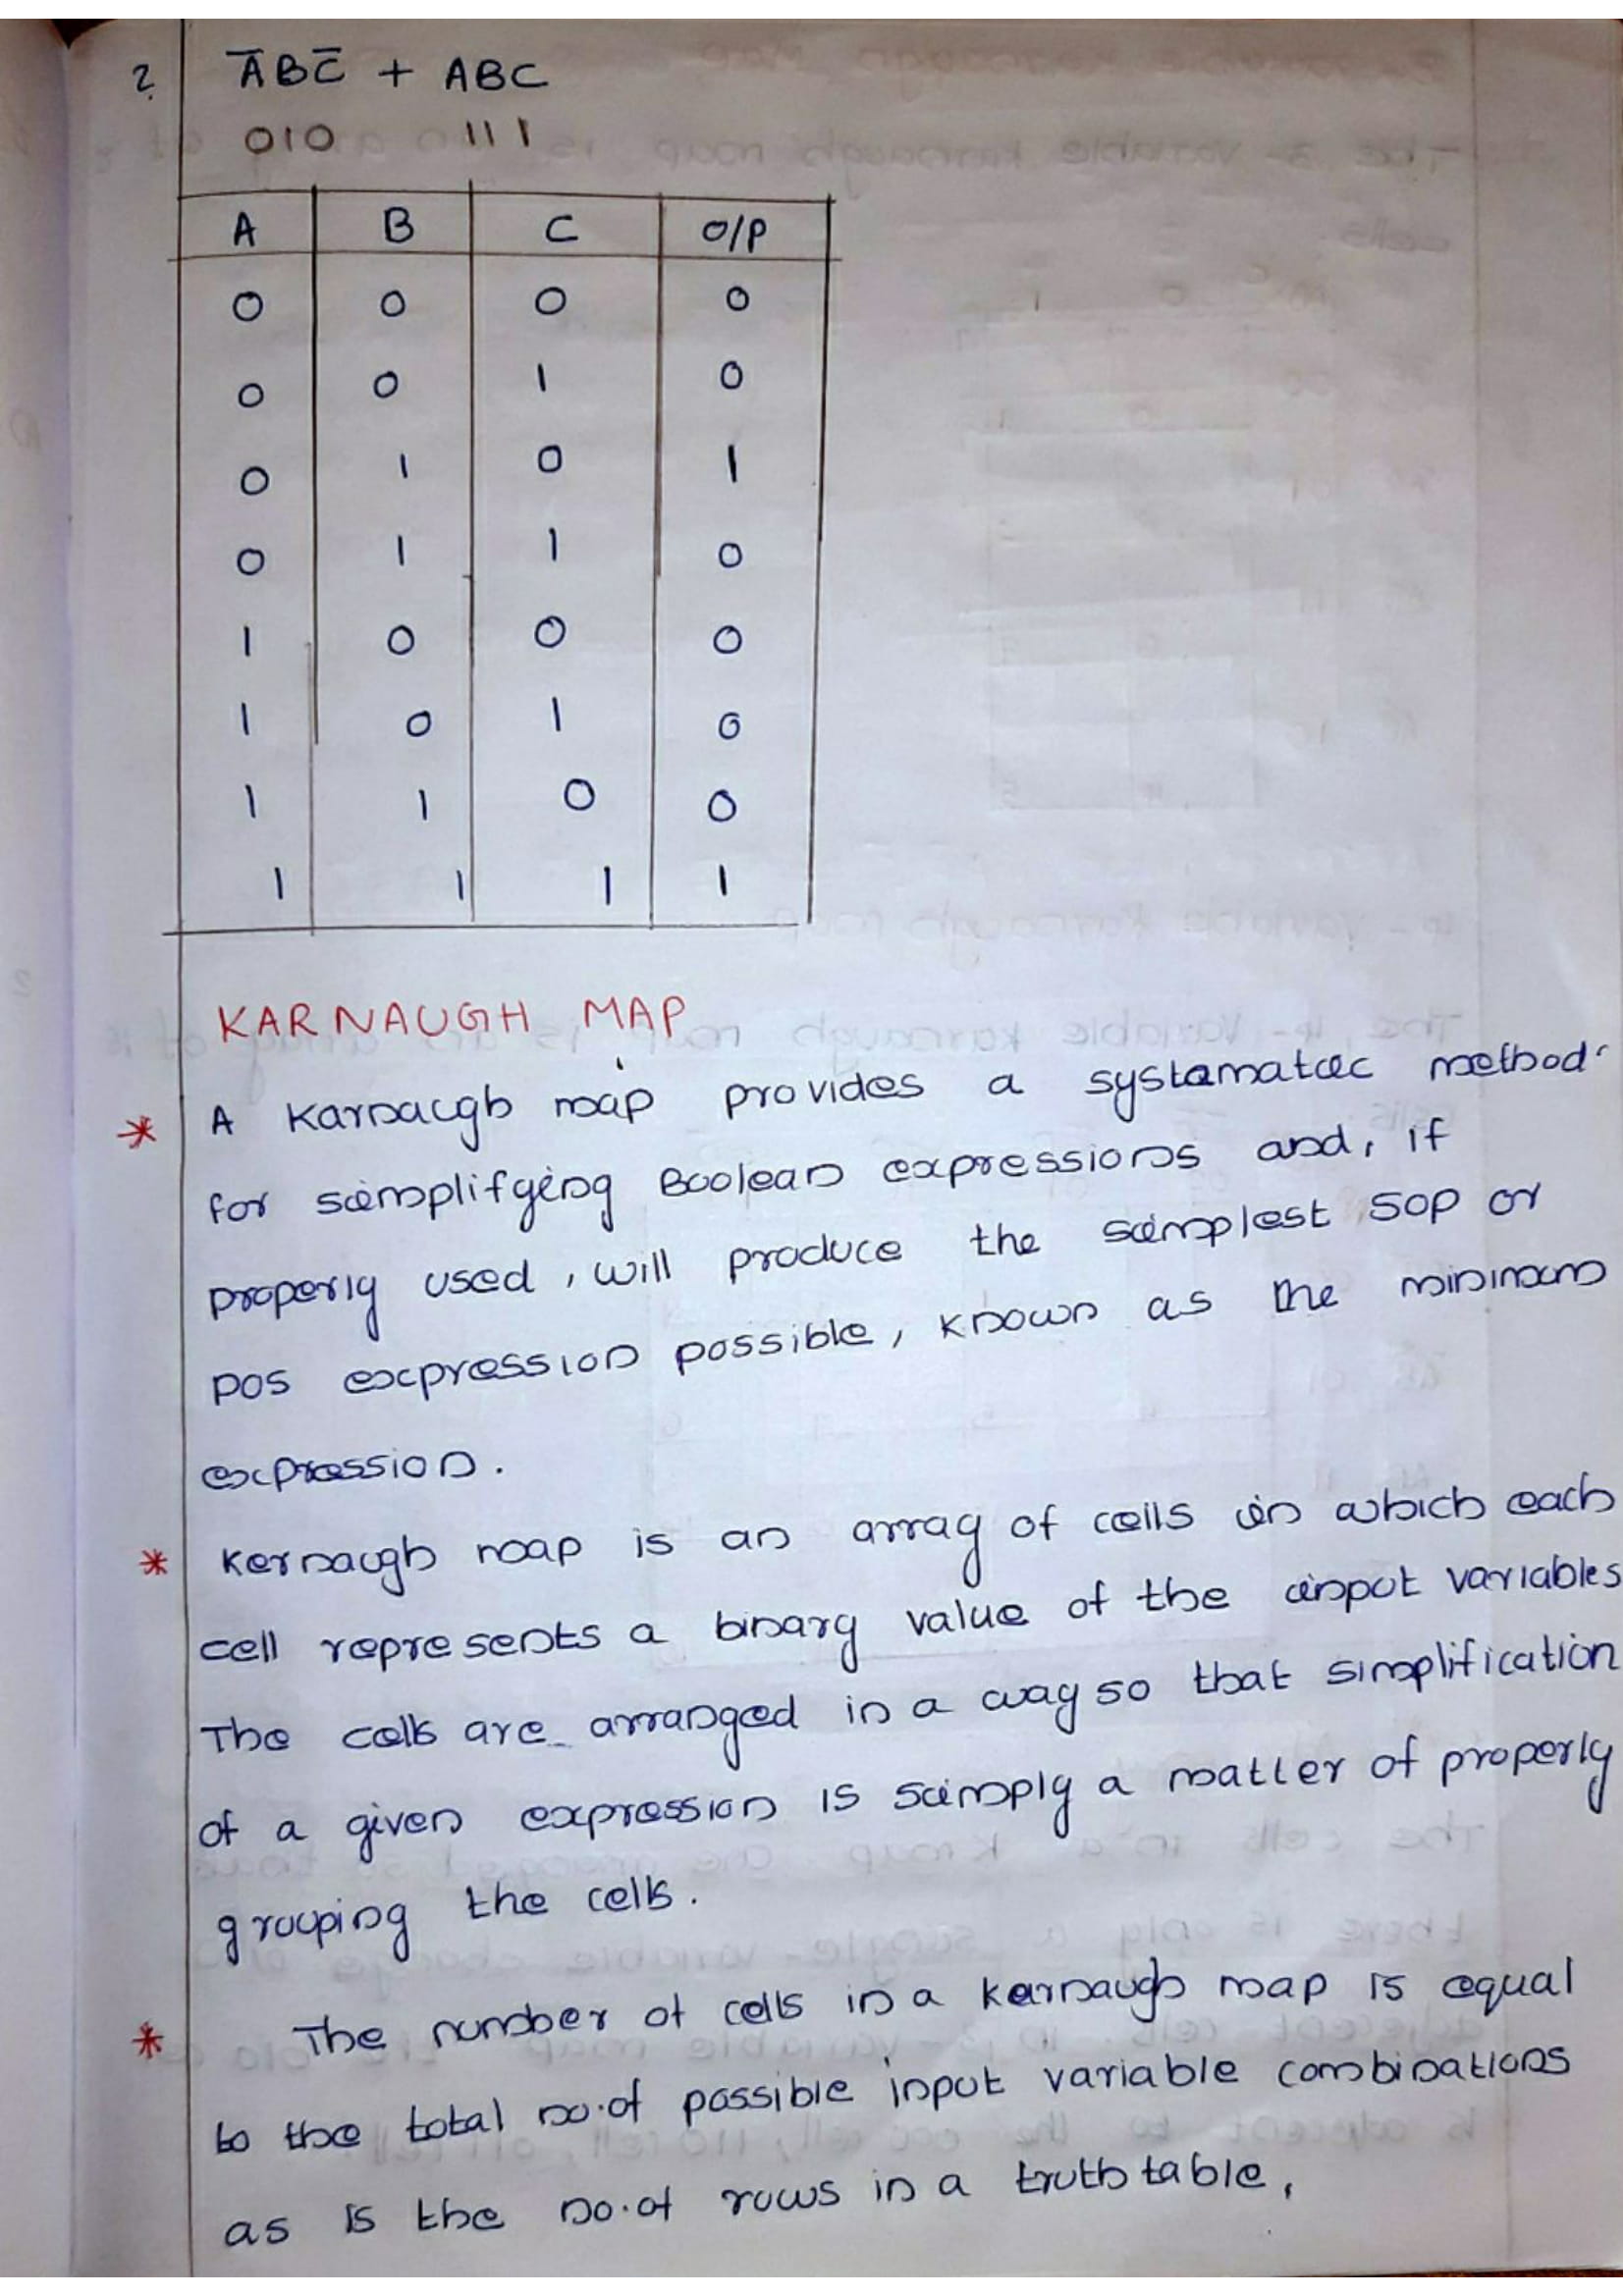 2. A̅BC̅ + ABC
010 111
A B C O/P
0 0 0 0
0 0 1 0
0 1 0 1
0 1 1 0
1 0 0 0
1 0 1 0
1 1 0 0
1 1 1 1
KARNAUGH MAP
* A Karnaugh map provides a systamatic method
for simplifying Boolean expressions and, if
properly used, will produce the simplest SOP or
POS expression possible, known as the minimum
expression.
* Kernaugh map is an array of cells in which each
cell represents a binary value of the input variables
The cells are arranged in a way so that simplification
of a given expression is simply a matter of properly
grouping the cells.
* The number of cells in a karnaugh map is equal
to the total no.of possible input variable combinations
as is the no.of rows in a truth table,